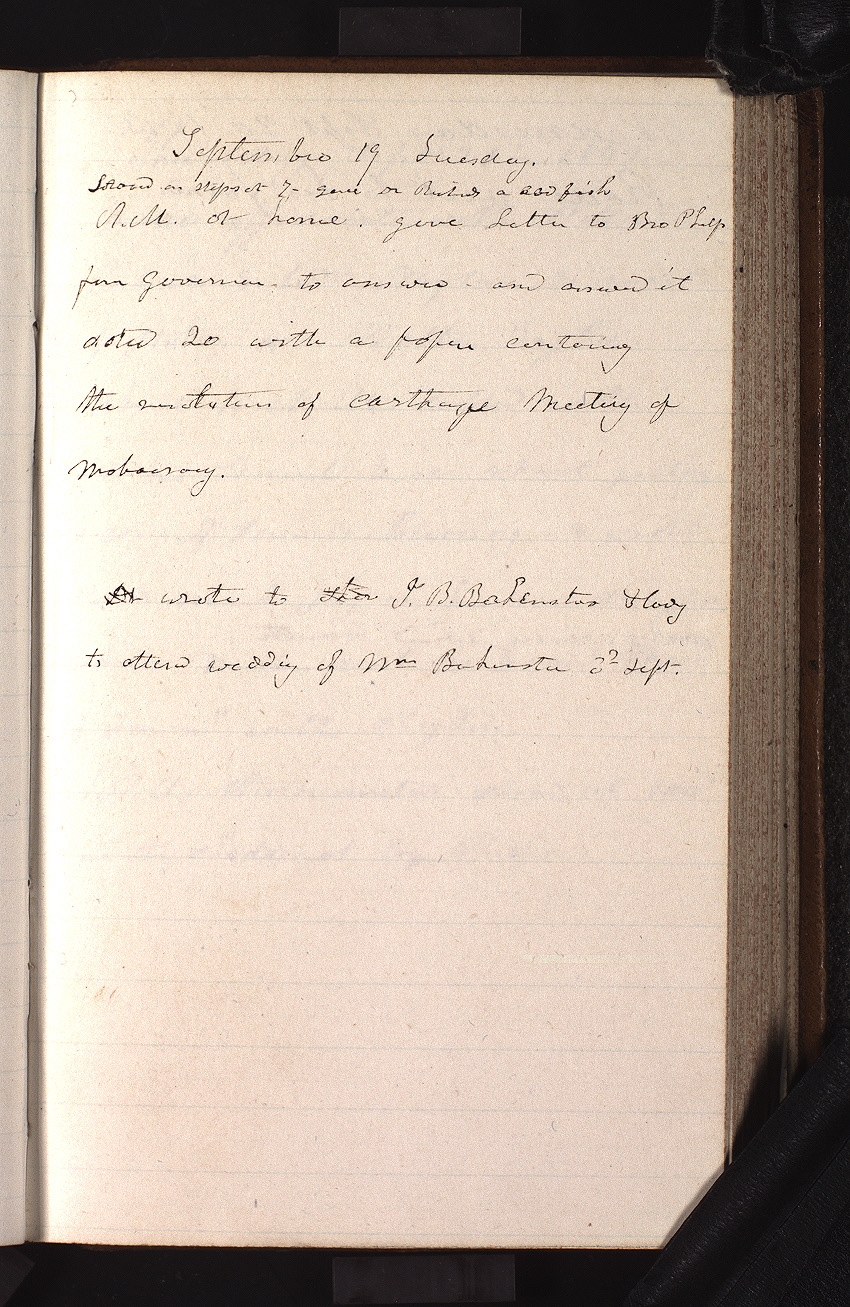 September 19 Tuesday.
Stood on steps at 7 - gave Dr Richards a cod fish
A.M. at home. gave letter to Bro Phelps
from Governor. to answer - and answered it
dated 20 with a paper containing
the resolutions of Carthage Meeting of
mobocracy.
wrote to J. B. Backenstos &
to attend wedding of Wm Backenstos 3d Sept.